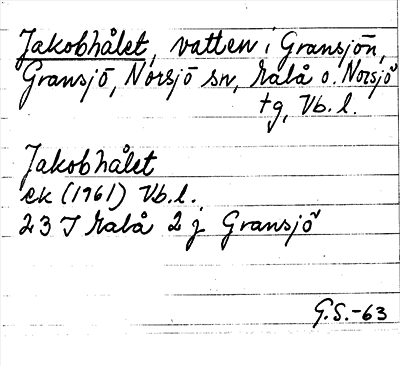 Jakobhålet, vatten i Gransjön,
Gransjö, Norsjö sn, Malå o. Norsjö
tg, Vb. l.
Jakobhålet
ek (1961) Vb. l.
23 J Malå 2 j Gransjö
G.S.-63